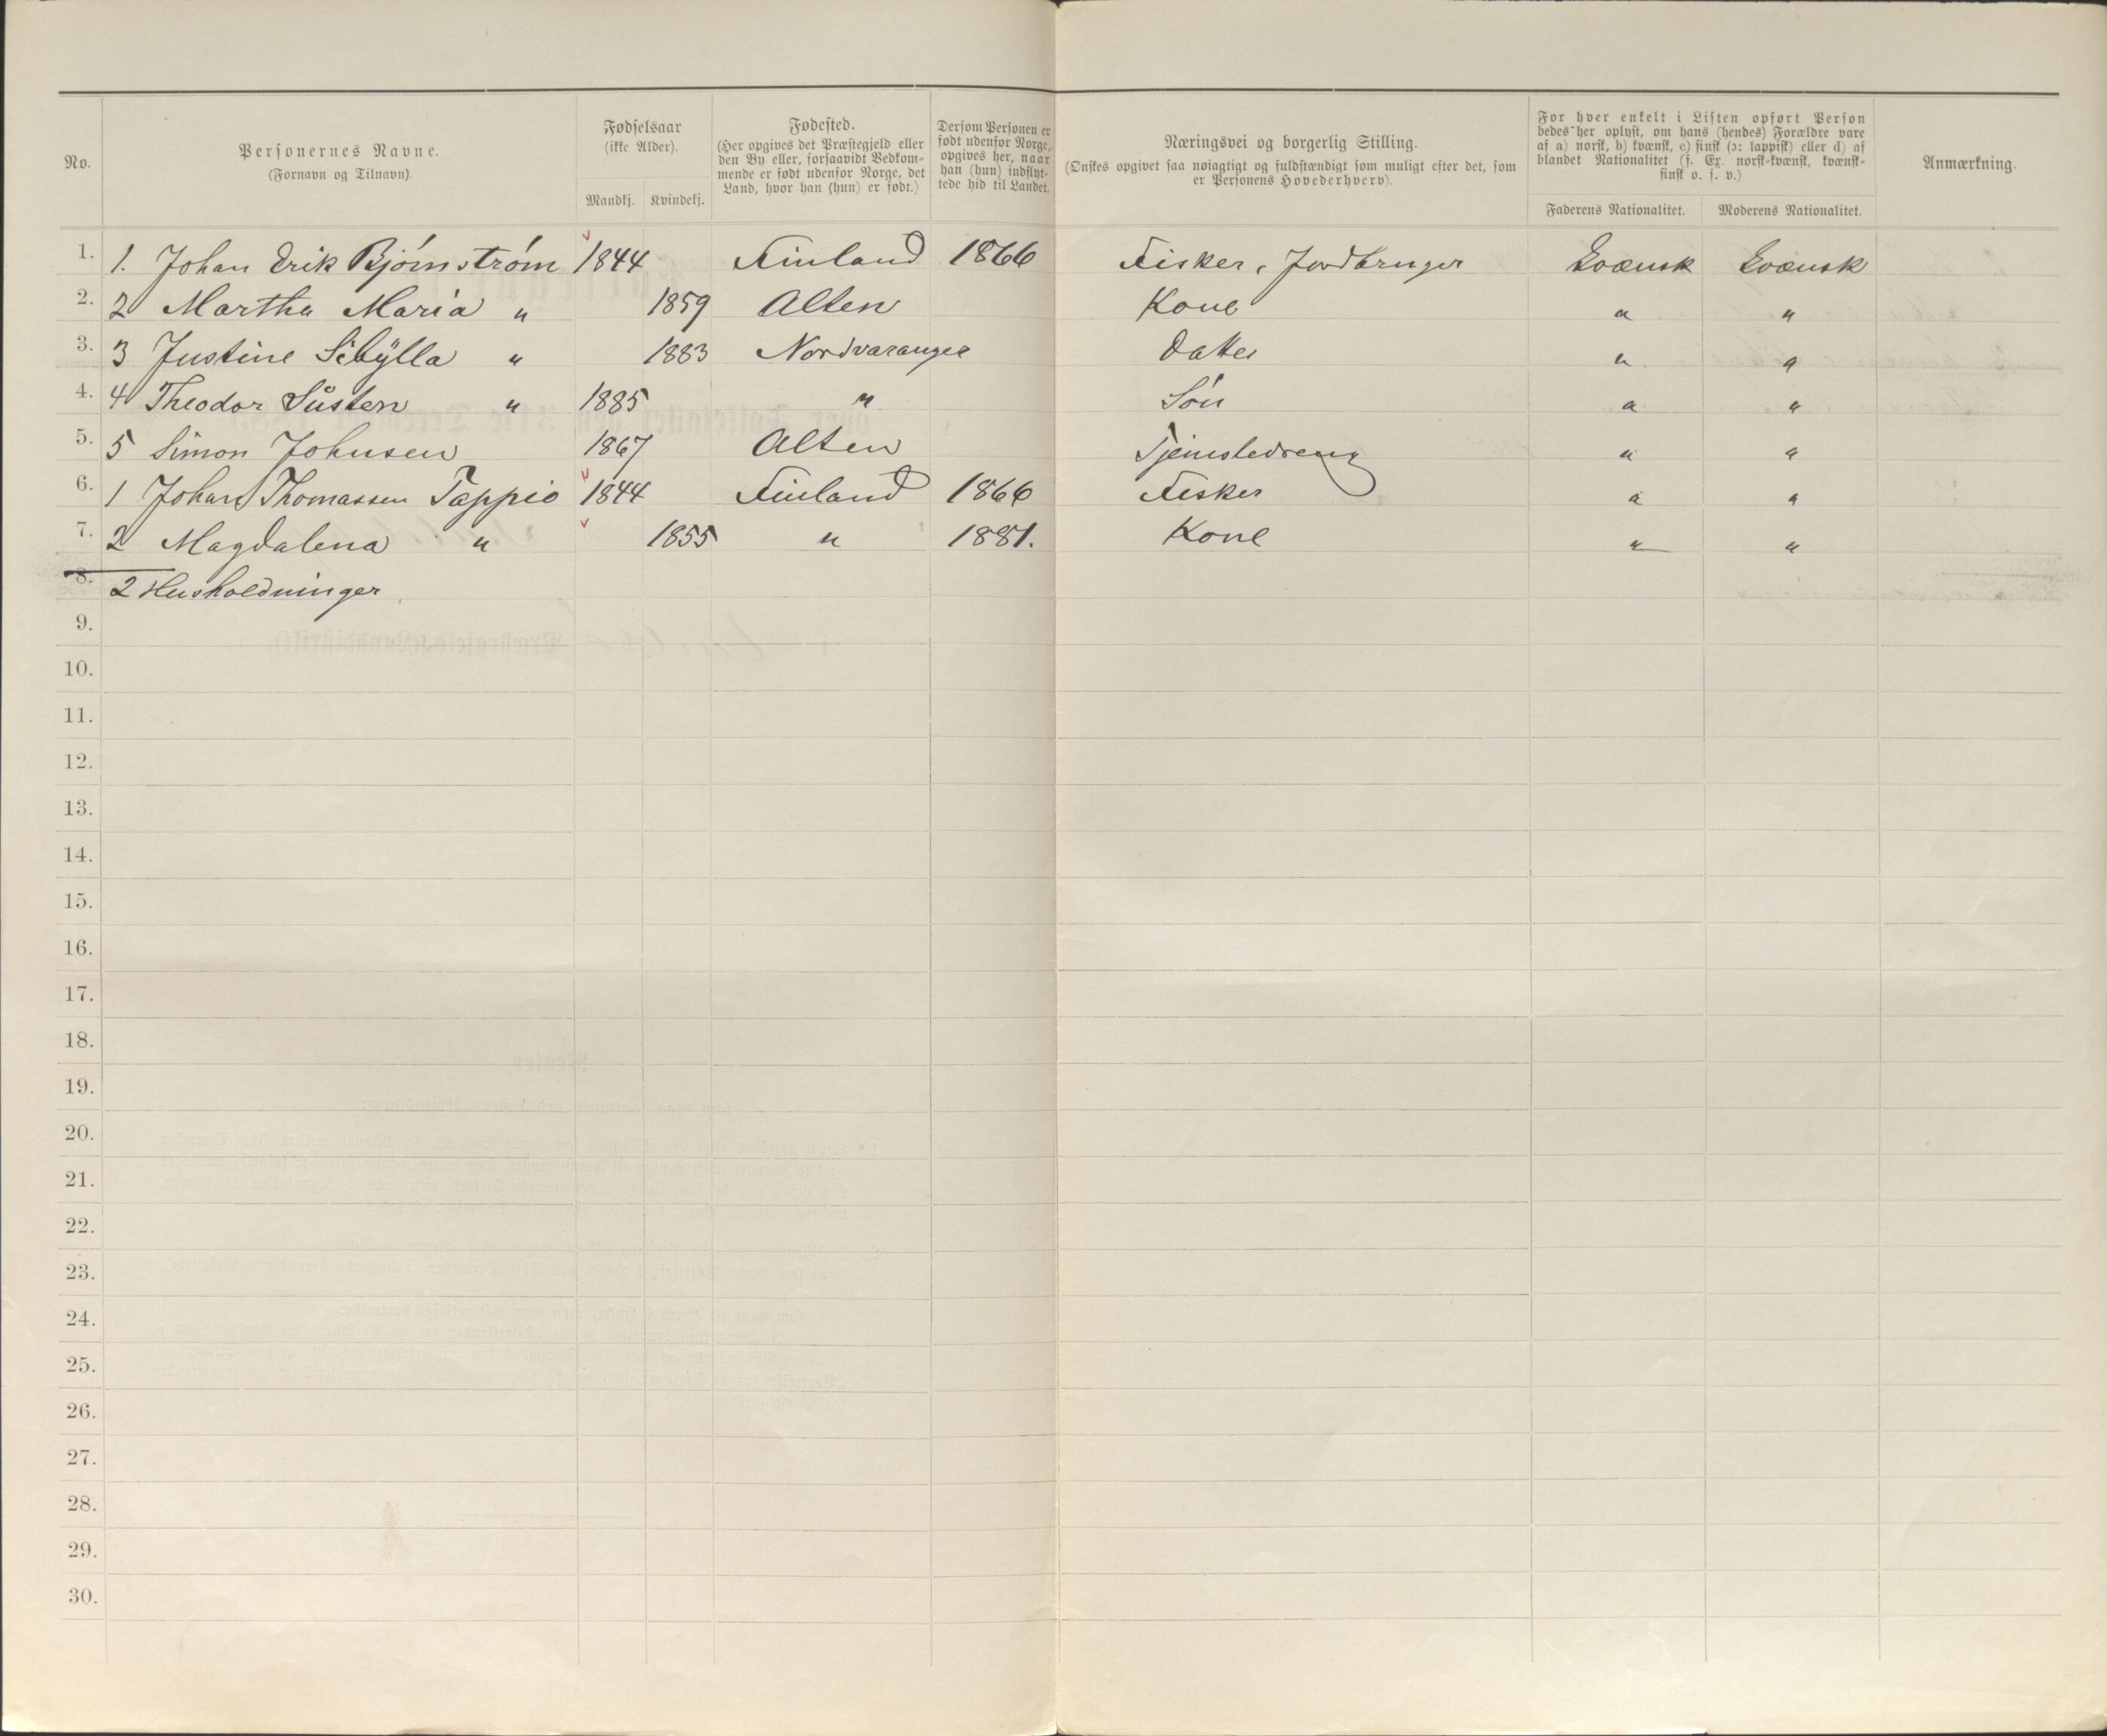 No.
Personernes Navne.
(Fornavn og Tilnavn).
Fødselsaar
(ikke Alder).
Mandkj. Kvindekj.
Fødested.
(Her opgives det Præstegjeld eller
den By eller, forsaavidt Vedkom-
mende er født udenfor Norge, det
Land, hvor han (hun) er født.)
Dersom Personen er
født udenfor Norge,
opgives her, naar
han (hun) indflyt-
tede hid til Landet.
Næringsvei og borgerlig Stilling.
(Ønskes opgivet saa nøiagtigt og fuldstændigt som muligt efter det, som
er Personens Hovederhverv).
For hver enkelt i Listen opført Person
bedes her oplyst, om hans (hendes) Forældre vare
af a) norsk, b) kvænsk, c) finsk (ɔ: lappisk) eller d) af
blandet Nationalitet (f. Ex. norsk-kvænsk, kvænsk-
finsk o. s. v.)
Faderens Nationalitet. Moderens Nationalitet.
Anmærkning.
1. 1. Johan Erik Bjørnstrøm 1844 Finland 1866 Fisker, Jordbruger Qvænsk Qvænsk
2. 2 Martha Maria " 1859 Alten Kone " "
3. 3 Justine Sibÿlla " 1883 Nordvaranger Datter " "
4. 4 Theodor " 1885 " Søn " "
5. 5 Simon Johnsen 1867 Alten Tjenestedreng " "
6. 1 Johan Thomassen Tappio 1844 Finland 1866 Fisker " "
7. 2 Magdalena " 1855 " 1881. Kone " "
8. 2 Husholdninger
9.
10.
11.
12.
13.
14.
15.
16.
17.
18.
19.
20.
21.
22.
23.
24.
25.
26.
27.
28.
29.
30.